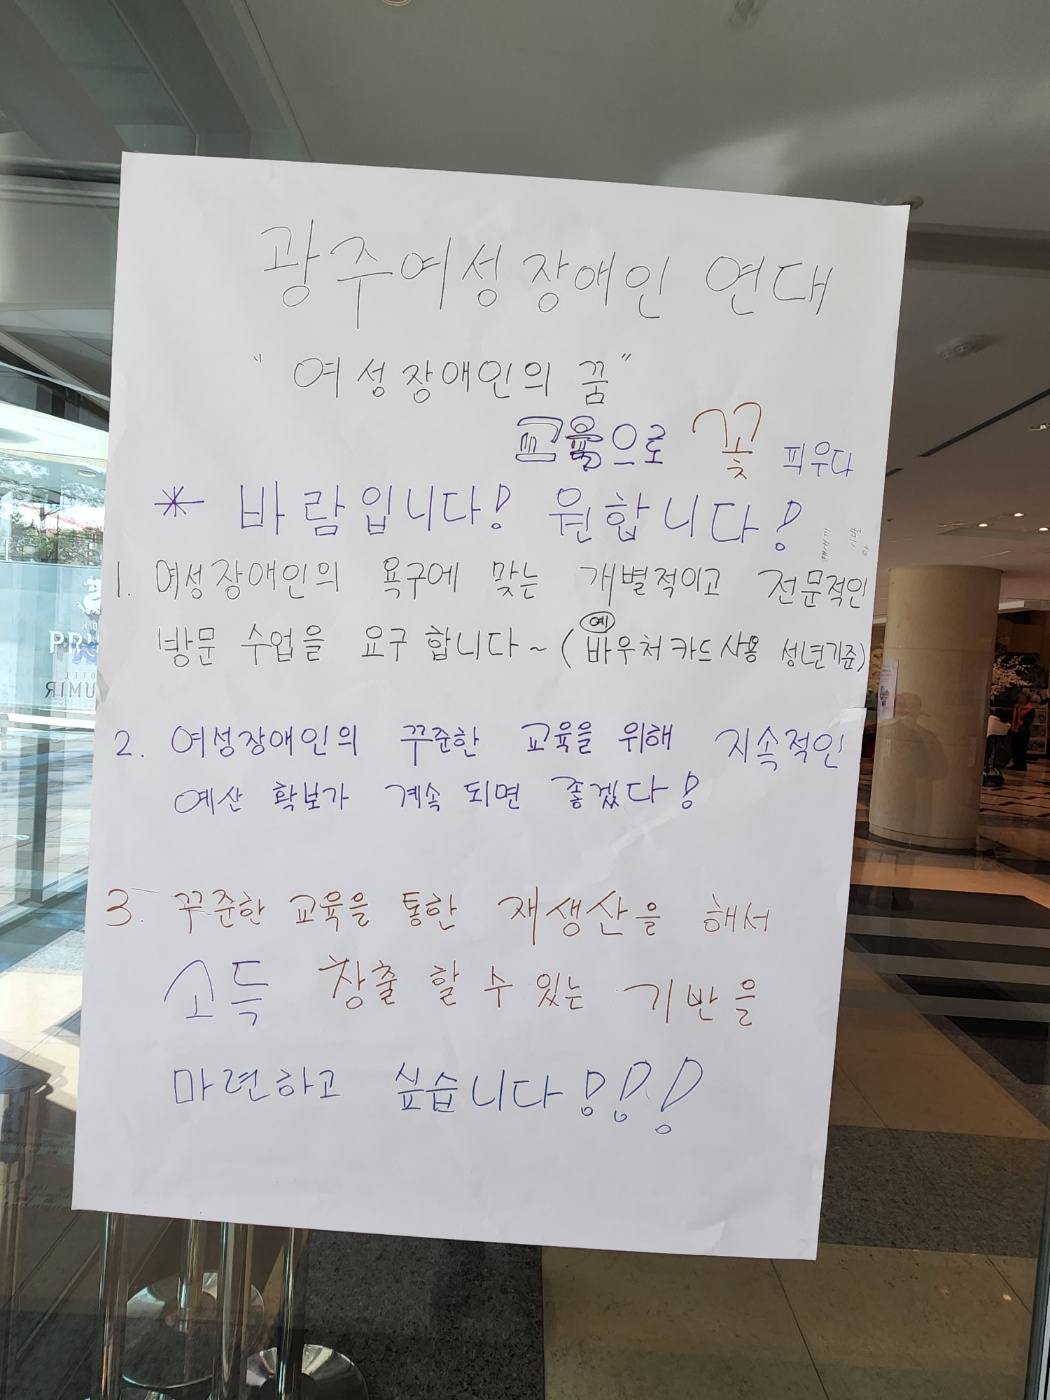 광주여성장애인 연대
"여성장애인의 꿈"
교육으로 꽃 피우다
* 바람입니다! 원합니다!
1. 여성장애인의 욕구에 맞는 개별적이고 전문적인
방문 수업을 요구 합니다~ (예 바우처카드사용 성년기준)
2. 여성장애인의 꾸준한 교육을 위해 지속적인
예산 확보가 계속 되면 좋겠다!
3. 꾸준한 교육을 통한 재생산을 해서
소득 창출 할 수 있는 기반을
마련하고 싶습니다!!!